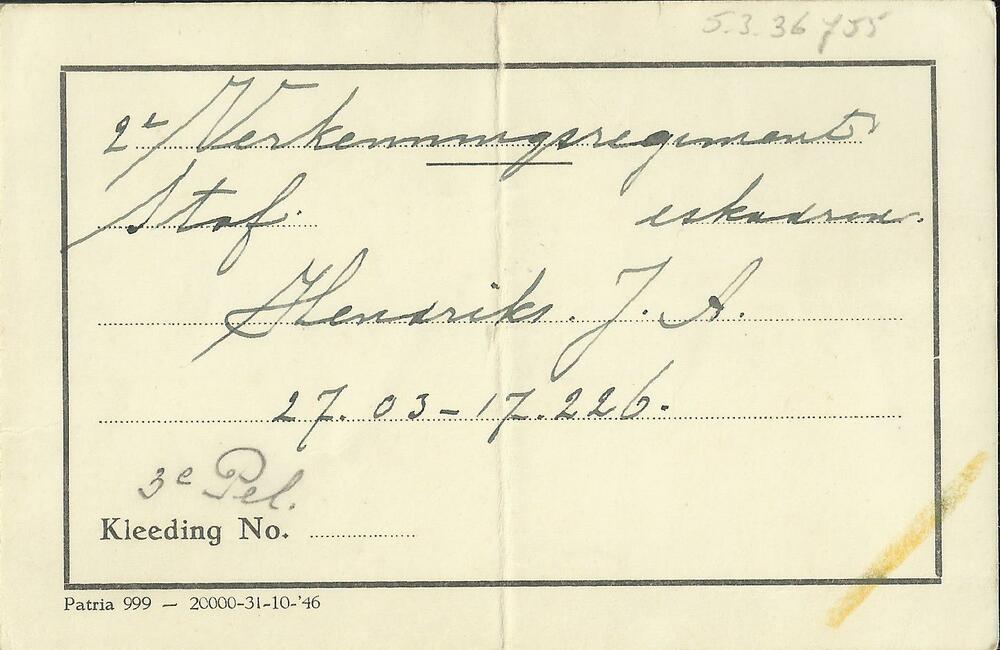 5.3.36 755
2e Verkenningsregiment
Staf. eskadron.
Hendriks. J. A.
27.03-17.226.
3e Pel.
Kleeding No.
Patria 999 — 20000-31-10-'46